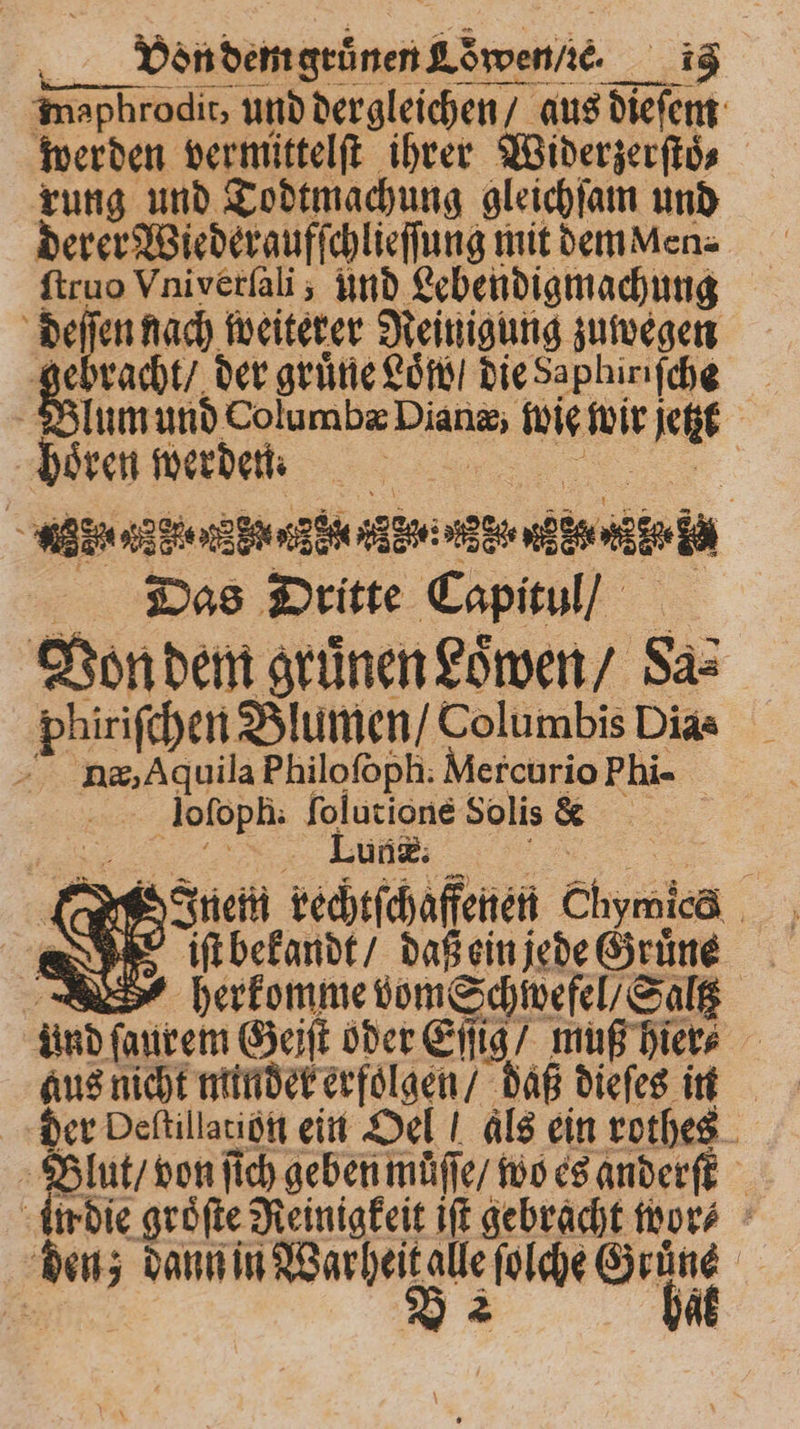 Von dem grünen Löwen/ꝛc. 19
maphrodit, und dergleichen / aus dieſem
werden vermittelſt ihrer Widerzerſtö⸗
rung und Todtmachung gleichſam und
derer Wiederaufſchlieſſung mit dem Men-
ſtruo Vniverſali; und Lebendigmachung
deſſen nach weiterer Reinigung zuwegen
gebracht/ der grüne Löw/ die Saphiriſche
Blum und Columbæ Dianæ, wie wir jetzt
hören werden.
Das Dritte Capitul/
Von dem grünen Löwen / Sa⸗
phiriſchen Blumen/ Columbis Dia-
næ, Aquila Philoſoph. Mercurio Phi-
loſoph. ſolutione Solis &
Lunæ.
EInem rechtſchaffenen Chymico
iſt bekandt / daß ein jede Grüne
herkomme vom Schwefel/ Saltz
und ſaurem Geiſt oder Eſſig / muß hier⸗
aus nicht minder erfolgen / daß dieſes in
der Deſtillation ein Oel / als ein rothes
Blut/ von ſich geben müſſe/ wo es anderſt
in die gröſte Reinigkeit iſt gebracht wor⸗
den; dann in Warheit alle ſolche Grüne
B 2 hat